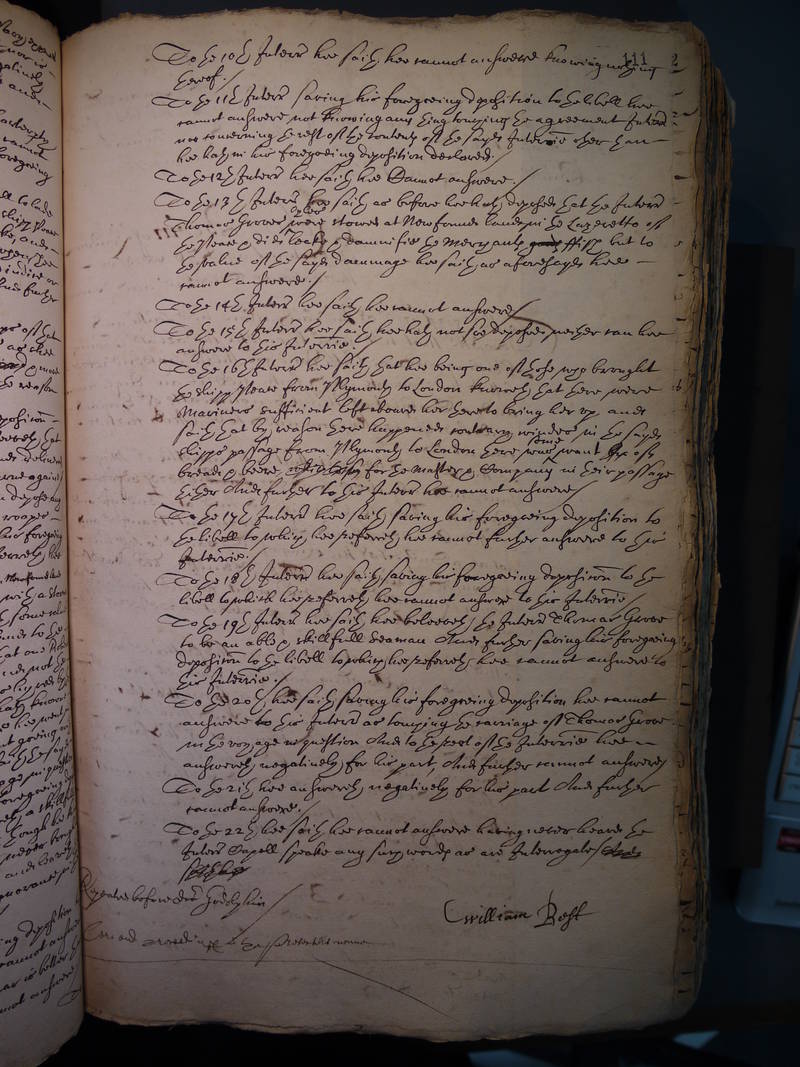 111 2
To the 10th Interr hee saith hee cannot answere knowing nothing
thereof./
To the 11th Interr saving his foregoeing deposition to the libell hee
cannot answere not knowing any thing touching the agreement Interr
nor concerning the rest of the contents of the sayd Interrie other than
hee hath in his foregoeing deposition declared./
To the 12th Interr hee saith hee Cannot answere./
To the 13th Interr hee saith as before hee hath deposed that the Interr
Thomas Grove stowed at Newfoundland in the Lazeretto of
the Peace did leake & damnifie the Merchants ffish but to
the value of the sayd dammage hee saith as aforesayd hee
cannot answere./
To the 14th Interr hee saith hee cannot answere/
To the 15th Interr hee saith hee hath not soe deposed neither can hee
answere to this Interrie./
To the 16th Interr hee saith that hee being one of those who brought
the shipp Peace from Plymouth to London knoweth that there were
Marriners sufficient left aboard her there to bring her up and
saith that by reason there happened contrary windes in the sayd
shipps passage from Plymouth to London there was some want of
bread & beere for the Master & Company in their passage
thither And further to this Interr hee cannot answere/
To the 17th Interr hee saith saving his foregoeing deposition to
the libell to which hee referreth hee cannot further answere to this
Interrie./
To the 18th Interr hee saith saving his foregoeing deposition to the
libell to which hee referreth hee cannot answere to this Interrie/
To the 19th Interr hee saith hee beleeveth the Interr Thomas Grove
to be an able & skillfull Seaman And further saving his foregoeing
deposition to the libell to which hee referreth hee cannot answere to
this Interrie./
To the 20th hee saith saving his foregoeing deposition hee cannot
answere to this Interr as touching the carriage of Thomas Grove
in the voyage in question And to the rest of the Interrie hee
answereth negatively for his part, And further cannot answere/
To the 21th hee answereth negatively for his part And further
cannot answere./
To the 22th hee saith hee cannot answere having never heard the
Interr Capell speake any such words as are Interrogate/
Repeated before doctor Godolphin
William Best